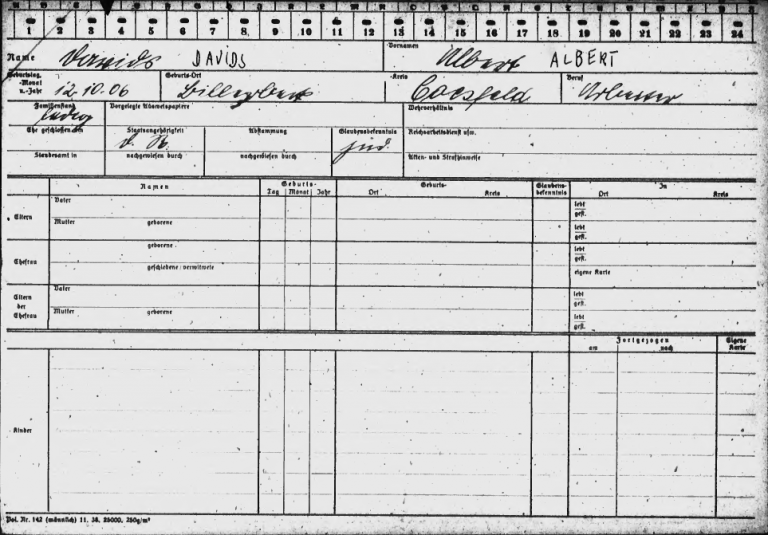 1 2 3 4 5 6 7 8 9 10 11 12 13 14 15 16 17 18 19 20 21 22 23 24
Name Davids DAVIDS Vornamen Albert ALBERT
Geburtstag, -Monat u.-Jahr 12.10.06 Geburts-Ort Billerbeck -Kreis Coesfeld Beruf Arbeiter
Familienstand ledig Vorgelegte Ausweispapiere Wehrverhältnis
Ehe geschlossen am Staatsangehörigkeit D. R. Abstammung Glaubensbekenntnis jüd. Reichsarbeitsdienst usw.
Standesamt in nachgewiesen durch nachgewiesen durch Akten- und Strafhinweise
Namen Geburts- Geburts- Glaubens- In
Tag Monat Jahr Ort Kreis bekenntnis Ort Kreis
Eltern Vater lebt
gest.
Mutter geborene lebt
gest.
Ehefrau geborene lebt
gest.
geschiedene : verwitwete eigene Karte
Eltern der Ehefrau Vater lebt
gest.
Mutter geborene lebt
gest.
Fortgezogen Eigene
am nach Karte
Kinder
Pol. Nr. 142 (männlich) 11. 38. 25000. 250g/m²